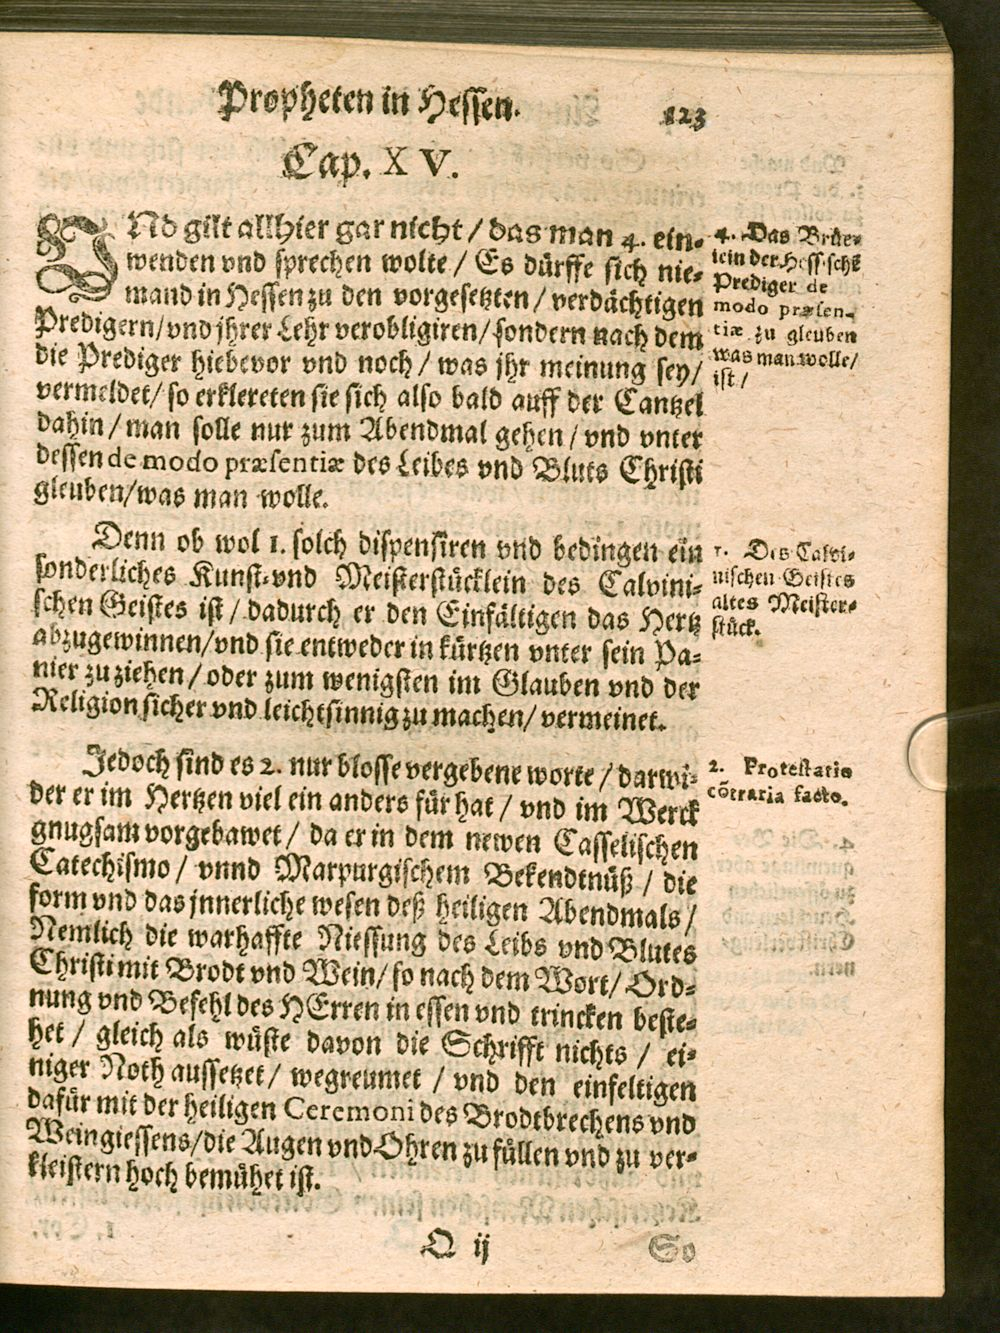 Propheten in Hessen. 123
Cap. XV.
VNd gilt allhier gar nicht / das man 4. ein-
wenden vnd sprechen wolte / Es dürffe sich nie-
mand in Hessen zu den vorgesetzten / verdächtigen
Predigern / vnd jhrer Lehr verobligiren / sondern nach dem
die Prediger hiebevor vnd noch / was jhr meinung sey /
vermeldet / so erklereten sie sich also bald auff der Cantzel
dahin / man solle nur zum Abendmal gehen / vnd vnter
dessen de modo præsentiæ des Leibes vnd Bluts Christi
gleuben / was man wolle.
4. Das Brüe-
lein der Hess. schē
Prediger de
modo præsen-
tiæ zu gleuben
was man wolle /
ist /
Denn ob wol 1. solch dispensiren vnd bedingen ein
sonderliches Kunst- vnd Meisterstücklein des Calvini-
schen Geistes ist / dadurch er den Einfältigen das Hertz
abzugewinnen / vnd sie entweder in kürtzen vnter sein Pa-
nier zu ziehen / oder zum wenigsten im Glauben vnd der
Religion sicher vnd leichtsinnig zu machen / vermeinet.
1. Des Calvi-
nischen Geistes
altes Meister-
stück.
Jedoch sind es 2. nur blosse vergebene worte / darwi-
der er im Hertzen viel ein anders für hat / vnd im Werck
gnugsam vorgebawet / da er in dem newen Casselischen
Catechismo / vnnd Marpurgischem Bekendtnüß / die
form vnd das jnnerliche wesen deß heiligen Abendmals /
Nemlich die warhaffte Niessung des Leibs vnd Blutes
Christi mit Brodt vnd Wein / so nach dem Wort / Ord-
nung vnd Befehl des HErren in essen vnd trincken beste-
het / gleich als wüste davon die Schrifft nichts / ei-
niger Noth aussetzet / wegreumet / vnd den einfeltigen
dafür mit der heiligen Ceremoni des Brodtbrechens vnd
Weingiessens / die Augen vnd Ohren zu füllen vnd zu ver-
kleistern hoch bemühet ist.
2. Protestatio
cōtraria facto.
Q ij So